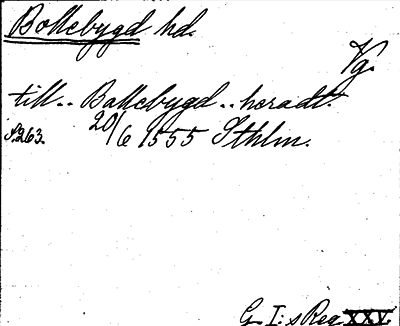 Bollebygd hd.
Vg.
till.. Ballebygd..heradt.
s.263. 20/6 1555 Sthlm.
G. I:s Reg XXV.